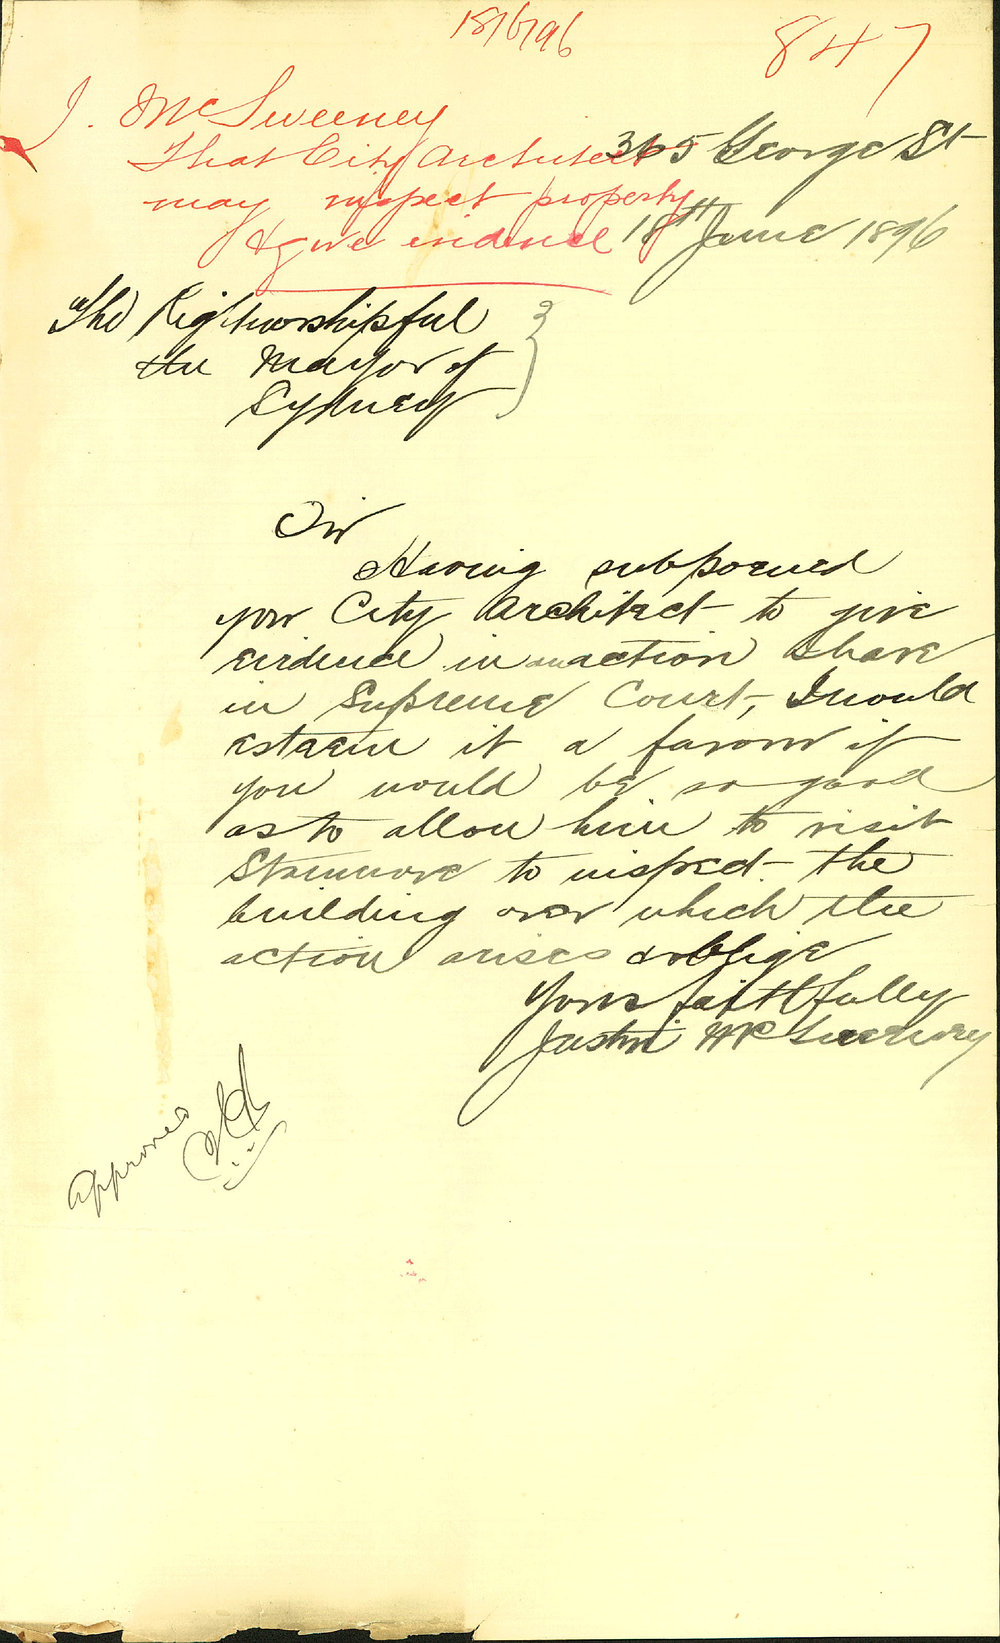 18/6/96
847
J. McSweeney
That City Architect
may inspect property
& give evidence
365 George St
18TH June 1896
The Right worshipful
the Mayor of
Sydney
Sir
Having subpoened
your City Architect to give
evidence in an action I have
in Supreme Court, I would
esteem it a favour if
you would be so good
as to allow him to visit
Stanmore to inspect the
building over which the
action arises & oblige
Yours faithfully
Justin McSweeney
Approved